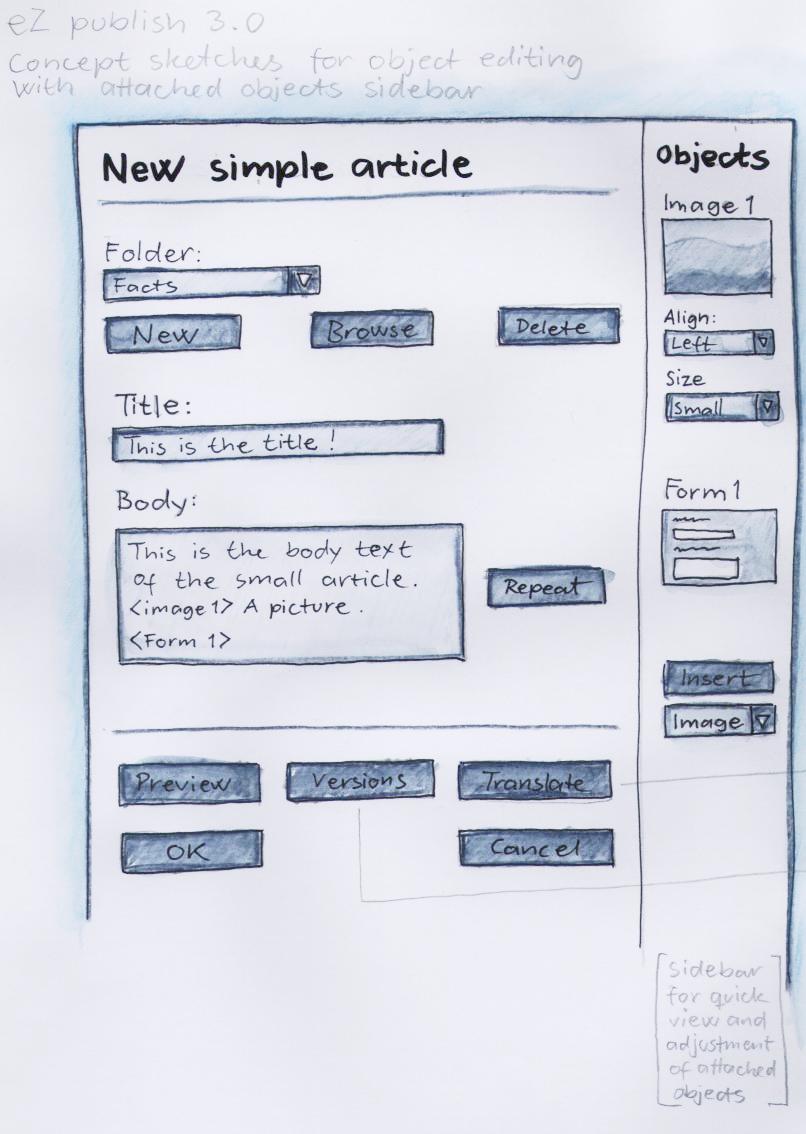 eZ publish 3.0
Concept sketches for object editing
with attached objects sidebar
New simple article
Folder:
Facts
New
Browse
Delete
Title:
This is the title !
Body:
This is the body text
of the small article.
<image 1> A picture .
<Form 1>
Repeat
Preview
Versions
Translate
OK
Cancel
Objects
Image 1
Align:
Left
Size
Small
Form 1
Insert
Image
[sidebar
for quick
view and
adjustment
of attached
objects]